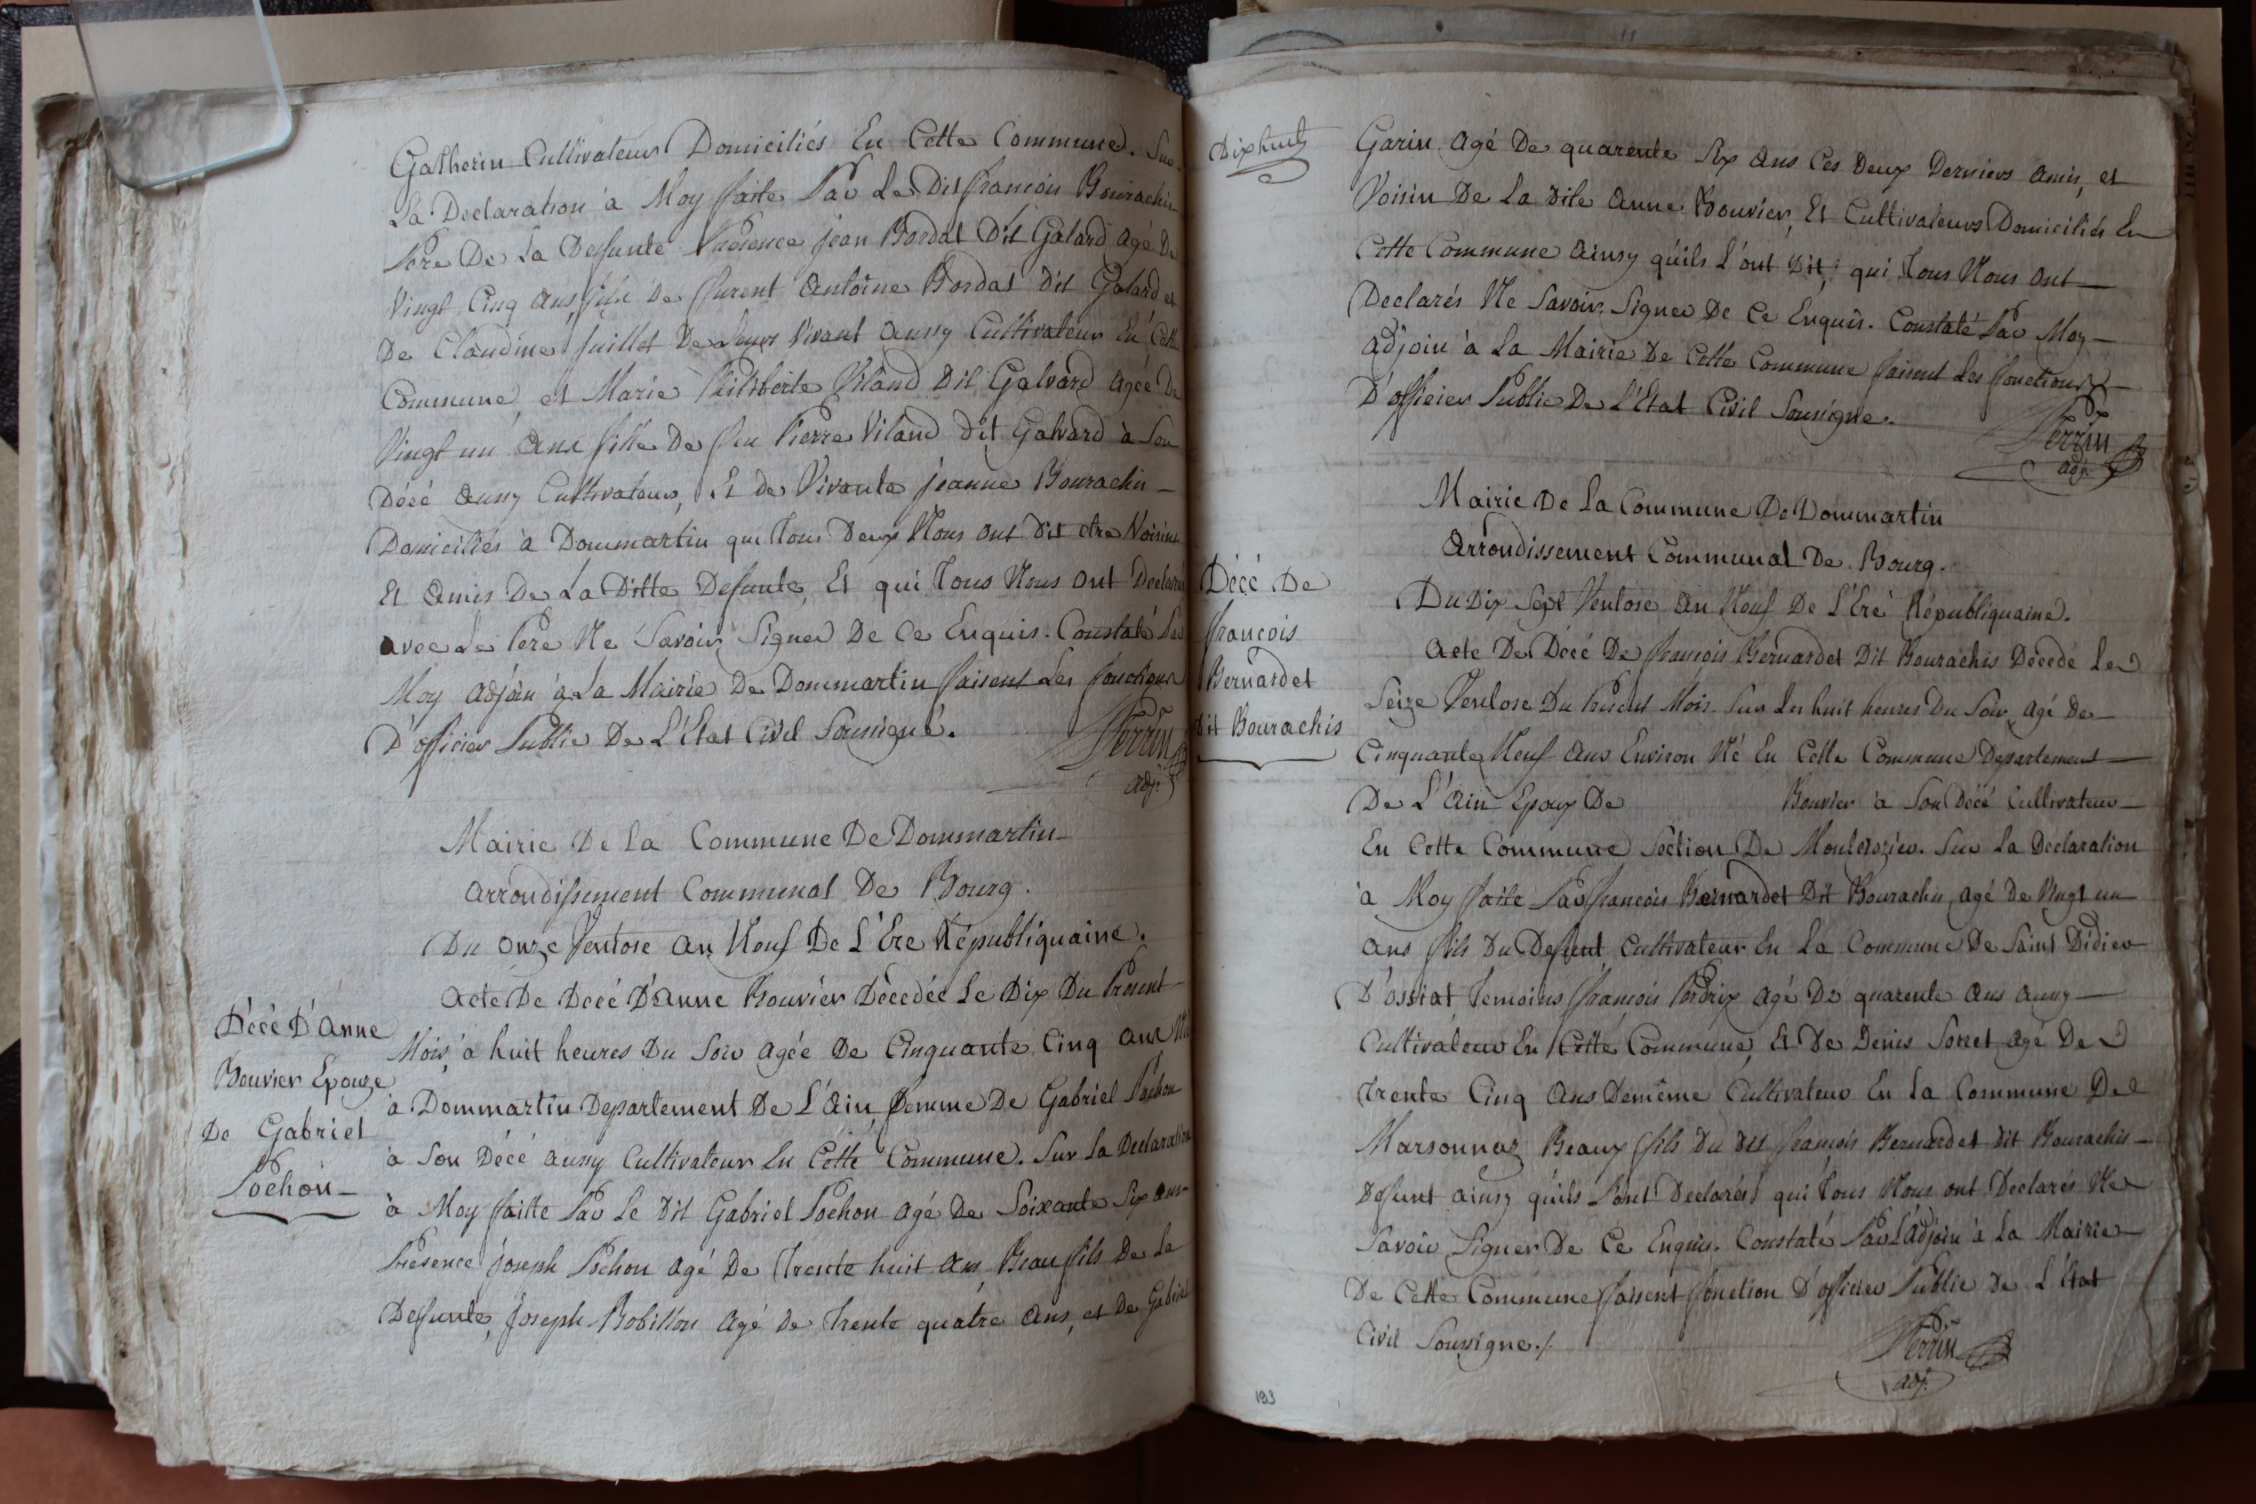 Gatherin Cultivateur Domiciliés En Cette Commune. Sur
La Declaration à Moy faite Par Le Dit francois Bourachin
Pere De La Defunte Presence jean Bordat Dit Galard agé De
Vingt Cinq ans, fils De furent Antoine Bordat Dit Galard et
De Claudine juillet De Leurs Vivant aussy Cultivateur En Cette
Commune, et Marie Philiberte Viland Dit Galvard agée De
Vingt un ans fille De feu Pierre Viland Dit Galvard à Son
Décé aussy Cultivateur, Et de Vivante jeanne Bourachin
Domiciliés à Dommartin qui Tous Deux Nous ont Dit etre Voisins
Et Amis De La Ditte Defunte, Et qui Tous Nous ont Declaré
avec Le Pere Ne Savoir Signer De Ce Enquis. Constaté Par
Moy adjoin à La Mairie De Dommartin faisent Les fonctions
D'officier Public De L'Etat Civil Soussigné.
Perrin
adj.
Mairie De La Commune De Dommartin
arrondissement Communal De Bourg.
Du onze Ventose an Neuf De L'Ere Républiquaine.
Décé D'Anne
Bouvier Epouze
De Gabriel
Pochon
Acte De Décé D'Anne Bouvier Décedée Le Dix Du Présent
Mois, à huit heures Du Soir agée De Cinquante Cinq ans Né
à Dommartin Departement De L'Ain femme De Gabriel Pochon
à Son Décé aussy Cultivateur En Cette Commune. Sur La Declaration
à Moy faitte Par Le Dit Gabriel Pochon agé De Soixante Six ans
Présence joseph Pochon agé De Trente huit ans, Beau fils De La
Defunte, joseph Robillon agé de Trente quatre ans, et De Gabriel
Dixhuit
Garin agé De quarente Six ans Ces Deux Derniers amis, et
Voisin De La Dite Anne Bouvier, Et Cultivateurs Domiciliés En
Cette Commune ainsy qu'ils L'ont Dit, qui Tous Nous ont
Declarés Ne Savoir Signer De Ce Enquis. Constaté Par Moy
adjoin à La Mairie De Cette Commune faisent Les fonctions
D'officier Public De L'Etat Civil Soussigne.
Perrin
adj.
Mairie De La Commune De Dommartin
Arrondissement Communal De Bourg.
Du Dix Sept Ventose an Neuf De L'Ere Républiquaine.
Décé De
francois
Bernardet
dit Bourachis
Acte De Décé De francois Bernardet Dit Bourachis Décedé Le
Seize Ventose Du Présent Mois Sur Les huit heures Du Soir, agé De
Cinquante Neuf ans Environ Né En Cette Commune Departement
De L'Ain Epoux De Bouvier à Son Décé Cultivateur
En Cette Commune Section De Sur La Declaration
à Moy faite Par francois Bernardet Dit Bourachis, agé De Vingt un
ans fils Du Defunt Cultivateur En La Commune De Saint Didier
D'ossiat Temoins francois Perdrix agé De quarente ans aussy
Cultivateur En Cette Commune, Et De Denis Sorret agé De
Trente Cinq ans Demême Cultivateur En La Commune De
Marsonnaz Beaux fils Du Dit francois Bernardet Dit Bourachis
Defunt ainsy qu'ils Sont Declarés, qui Tous Nous ont Declarés Ne
Savoir Signer De Ce Enquis. Constaté Par L'adjoin à La Mairie
De Cette Commune faisent fonction D'officier Public De L'Etat
Civil Soussigne./.
Perrin
adj.
193